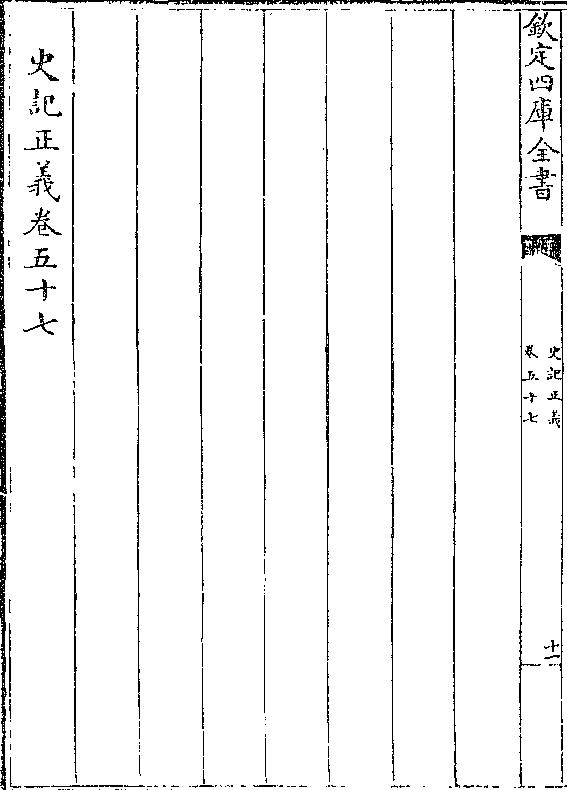 欽定四庫全書
史記正義
卷五十七
十一
史記正義卷五十七